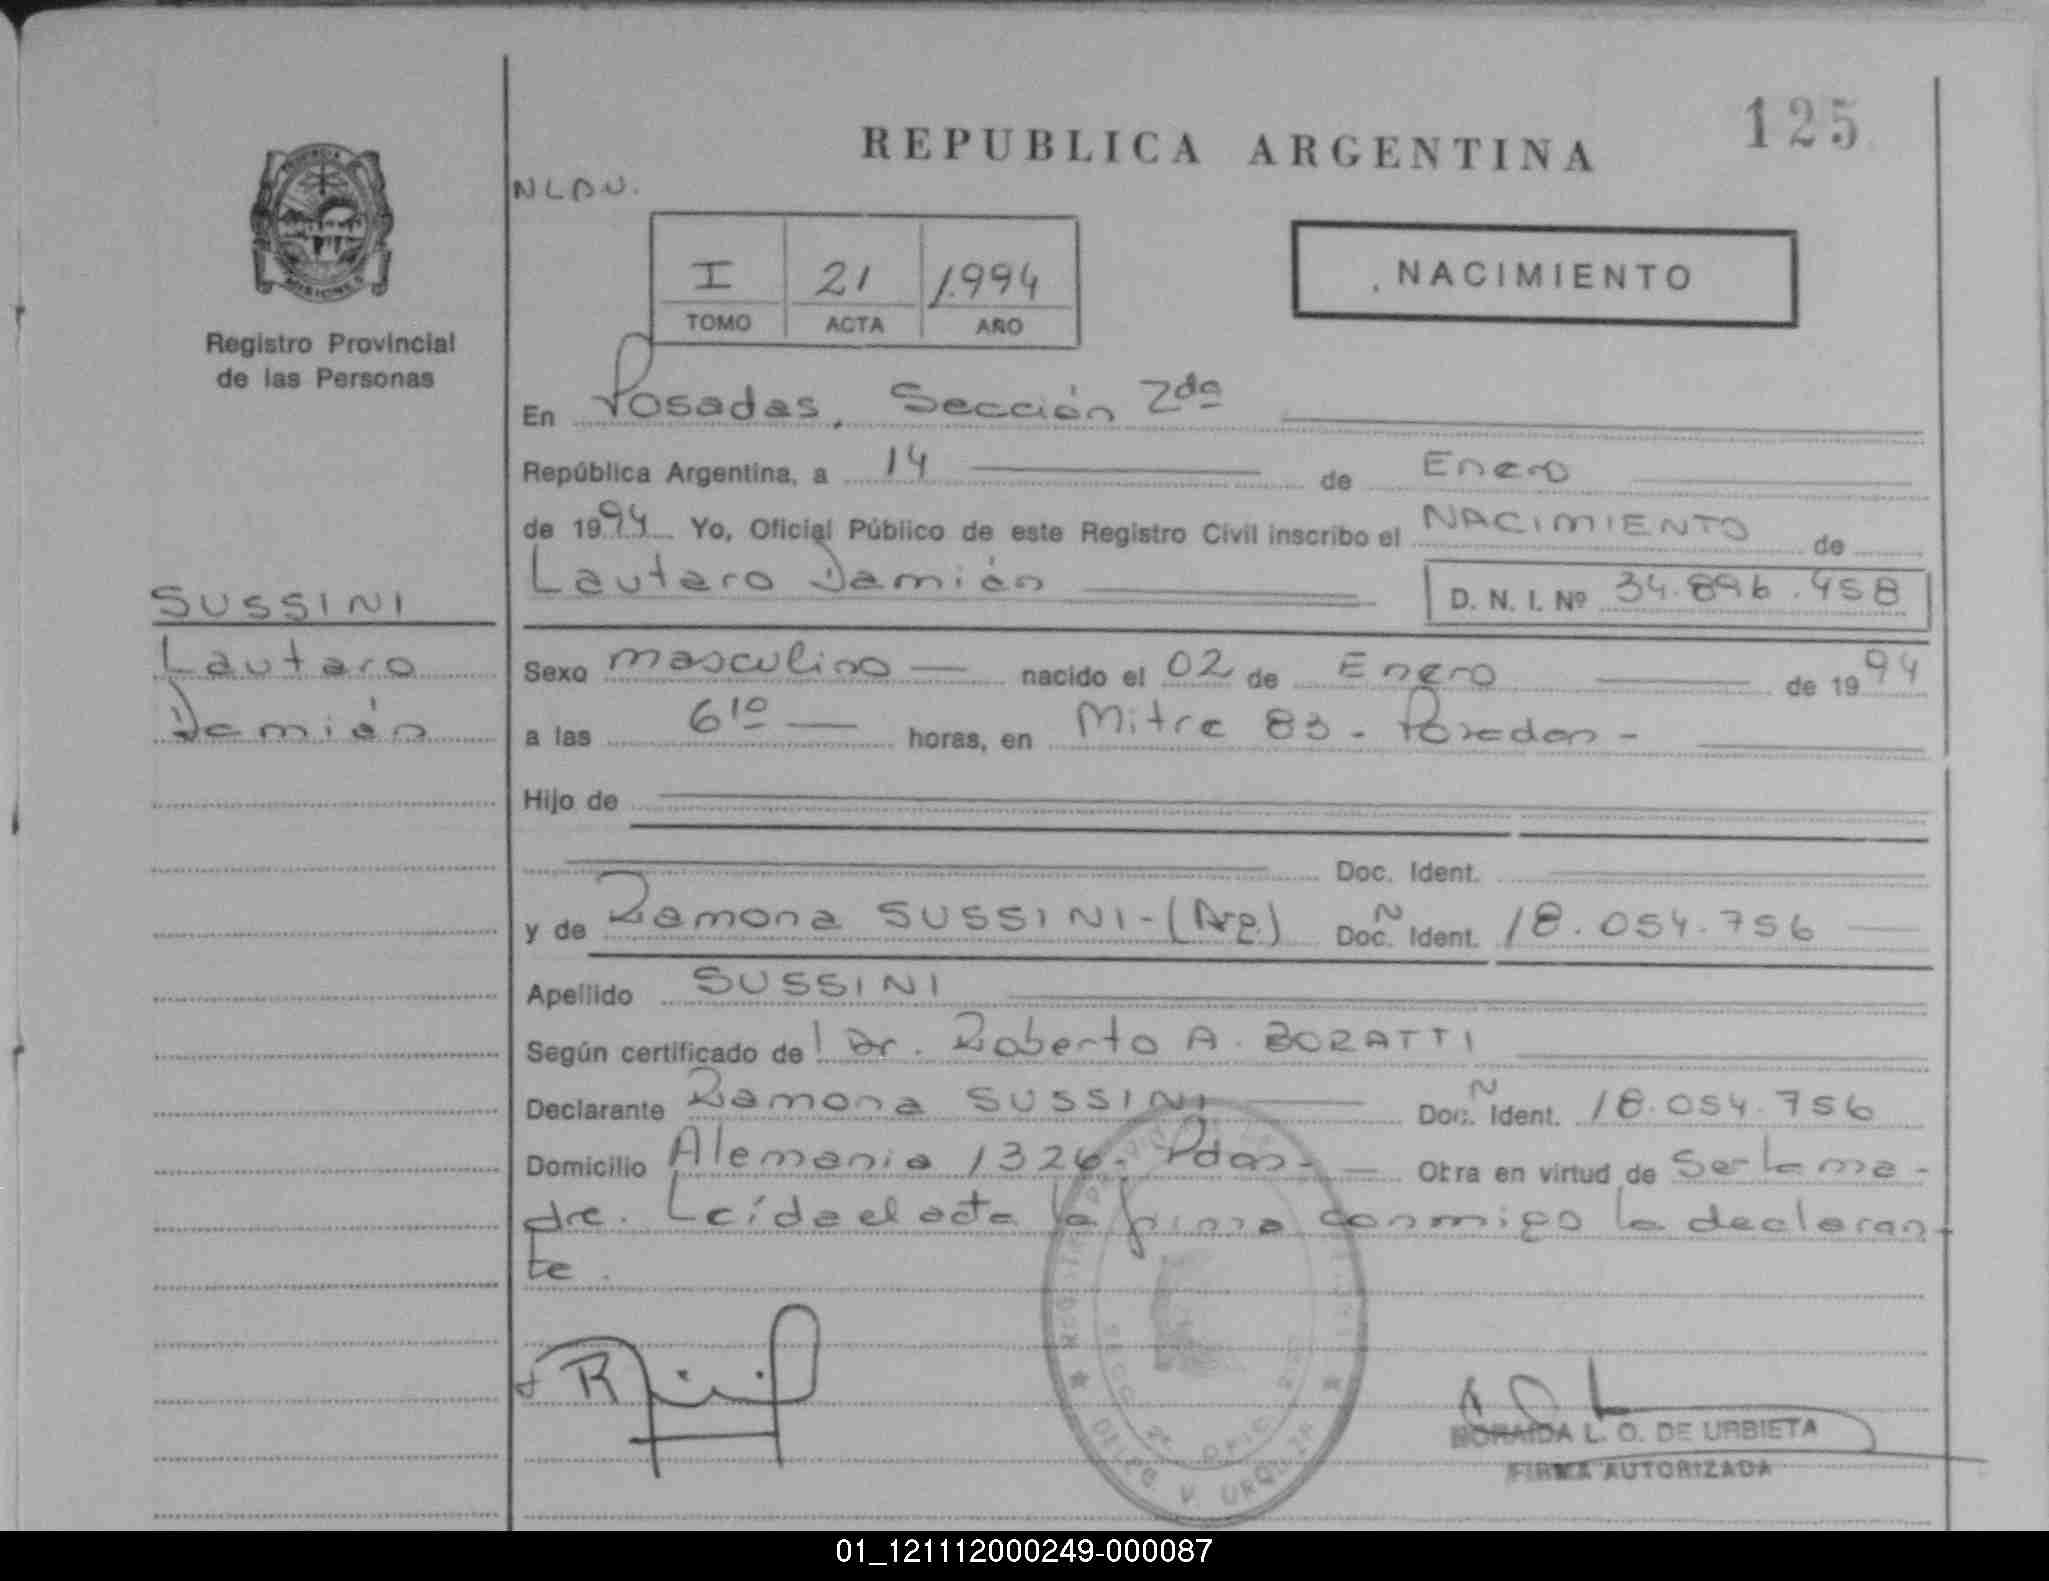 125
REPUBLICA ARGENTINA
NLDU.
I 21 1.994
TOMO ACTA AÑO
NACIMIENTO
Registro Provincial
de las Personas
En Posadas, Sección 2da
República Argentina, a 14 de Enero
de 1994 Yo, Oficial Público de este Registro Civil inscribo el NACIMIENTO de
Lautaro Damián D. N. I. Nº 34.896.458
SUSSINI
Lautaro
Damián
Sexo masculino nacido el 02 de Enero de 1994
a las 6 10 horas, en Mitre 83 - Posadas -
Hijo de
Doc. Ident.
y de Ramona SUSSINI - (Arg.) Doc. Ñ Ident. 18.054.756
Apellido SUSSINI
Según certificado de Dr. Roberto A. BORATTI
Declarante Ramona SUSSINI Doc. Ñ Ident. 18.054.756
Domicilio Alemania 1326 - Pdas - Obra en virtud de Ser la ma-
dre. Leída el acta la firma conmigo la declaran-
te.
REGISTRO PROVINCIAL DE LAS
SECC. 2ª OFIC.
DELEG. V. URQUIZA
NORAIDA L. O. DE URBIETA
FIRMA AUTORIZADA
01_121112000249-000087